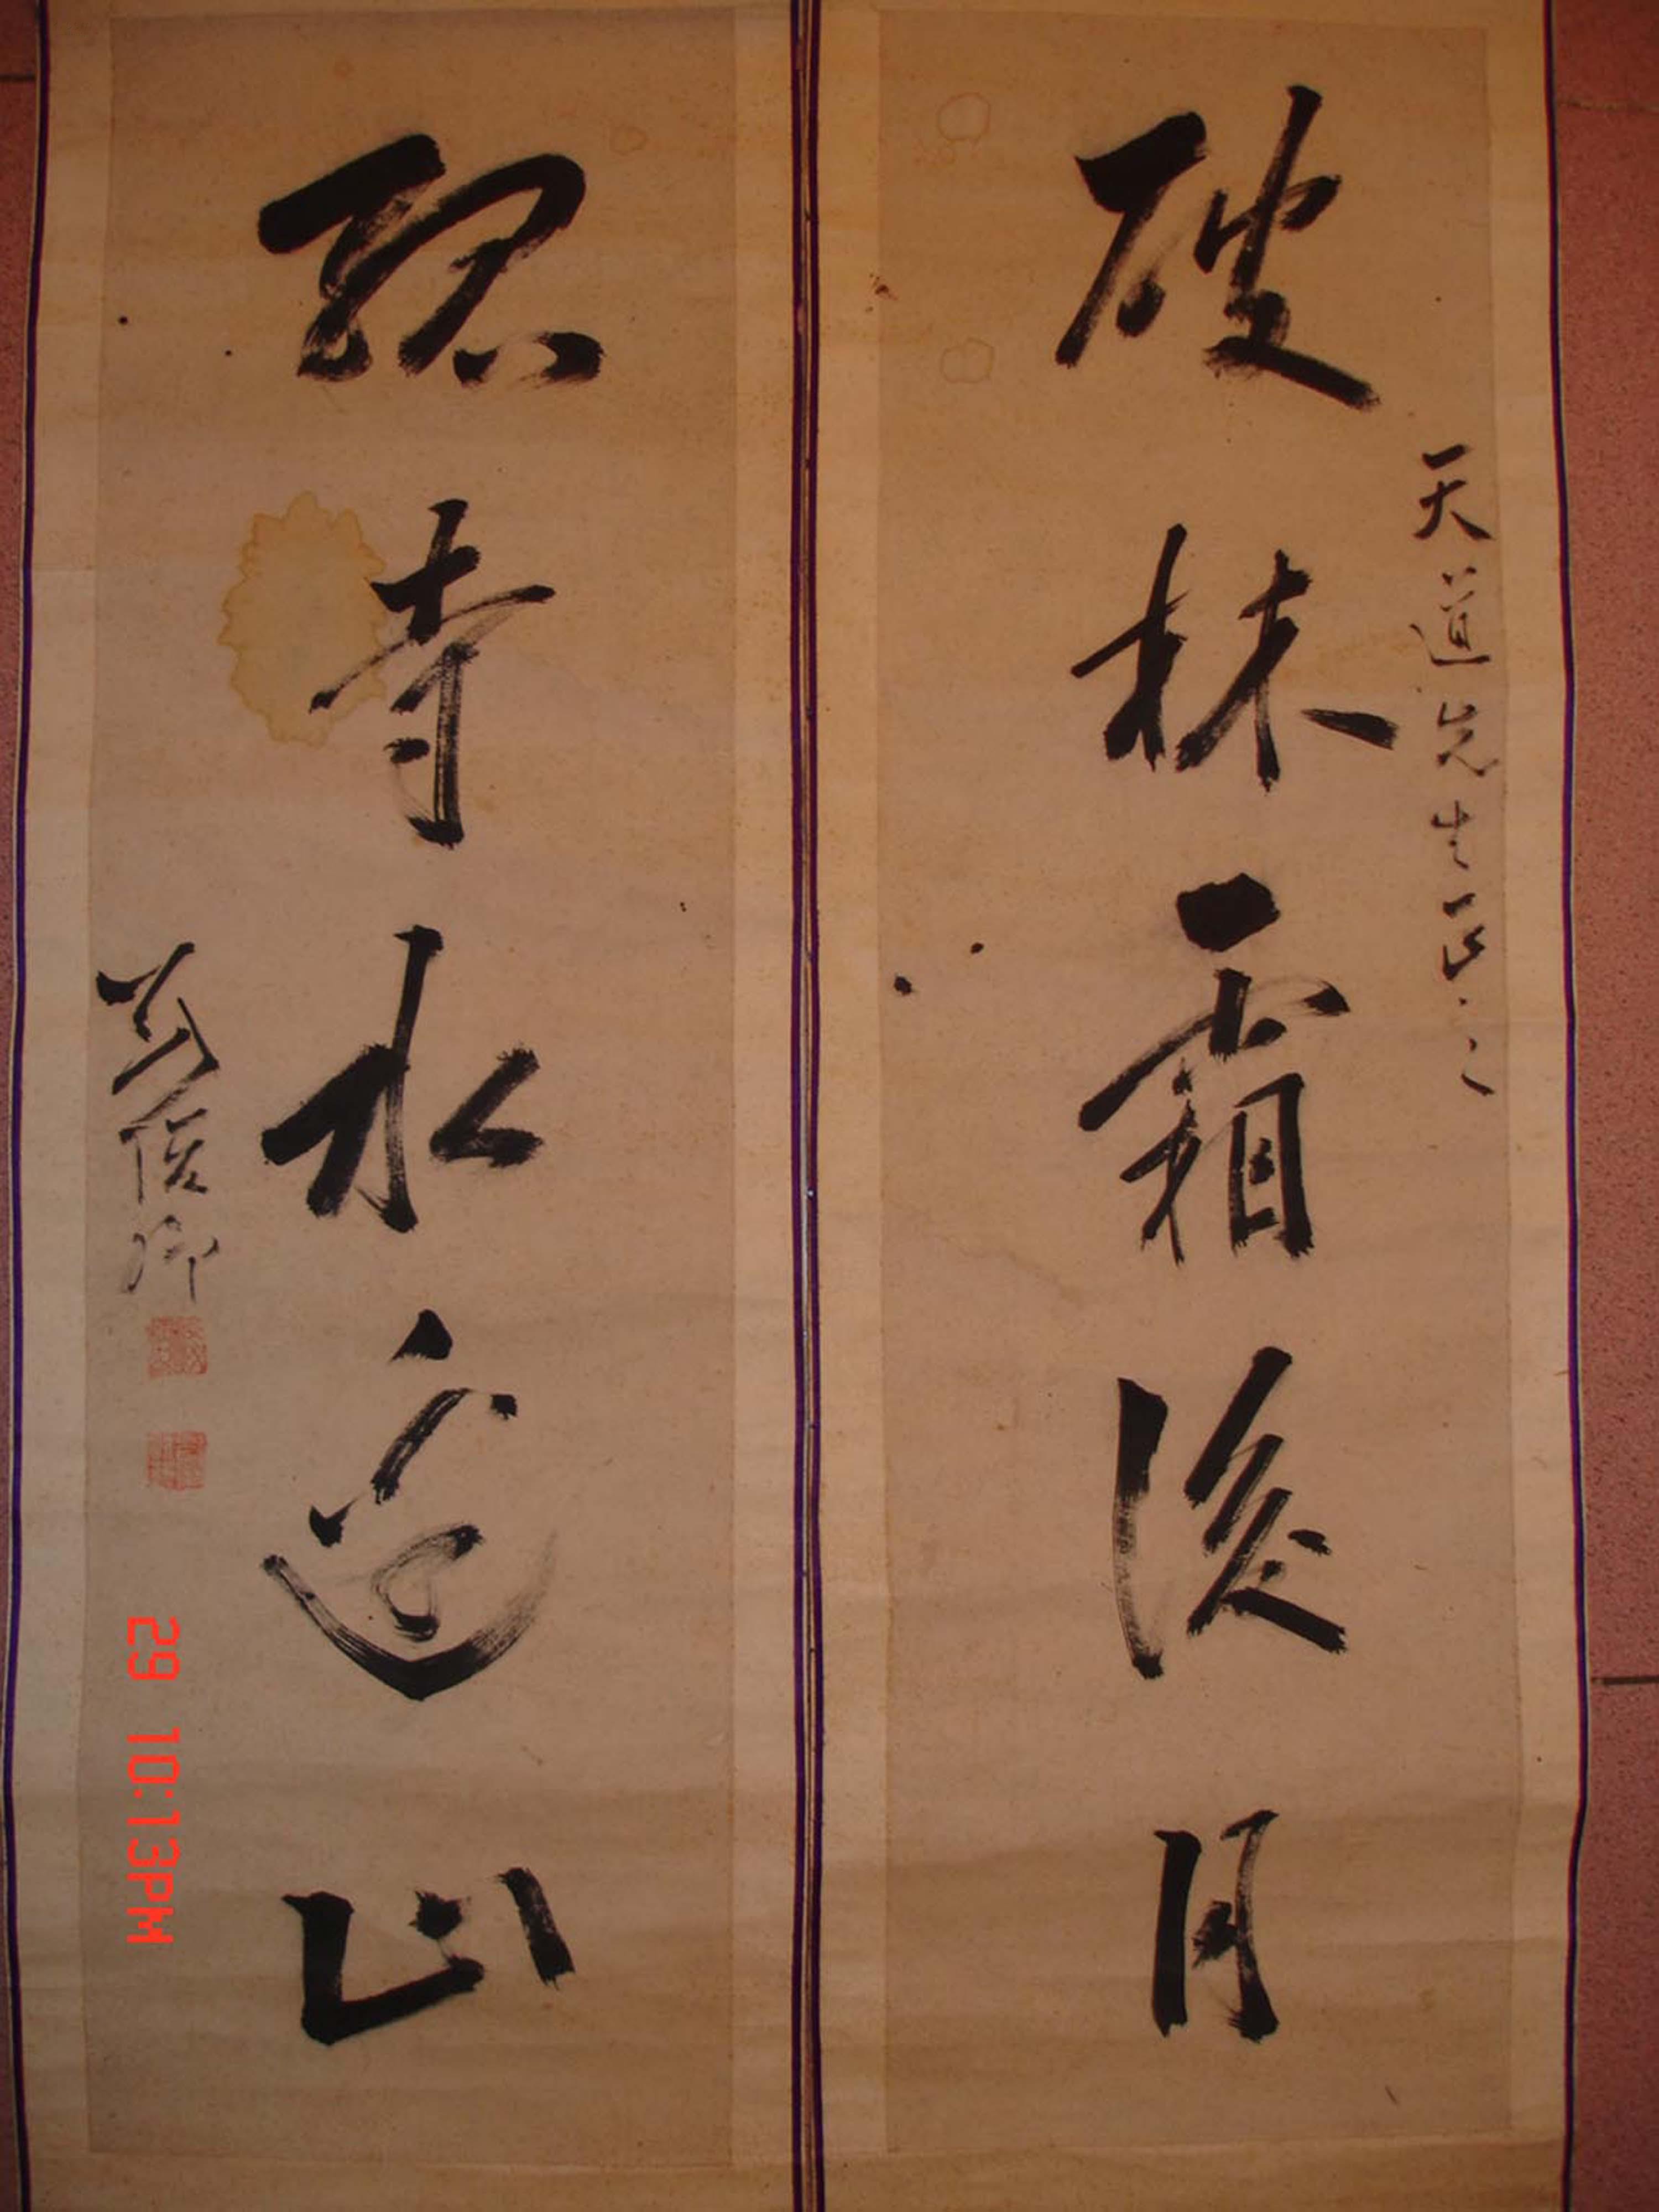 天道先生正之
破林霜後月
孤寺水邊山
吳俊卿
29 10:13PM